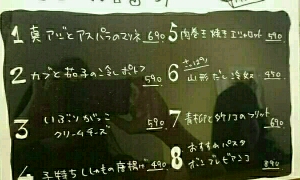 1 真アジとアスパラのマリネ 690
2 カブと茄子の冷しポトフ 590
3 いぶりがっこ
クリームチーズ 590
4 子持ちししゃもの唐揚げ 490
5 肉巻き焼きエシャロット 590
6 さっぱり
山形だし冷奴 490
7 青材とタケノコのフリット 690
8 おすすめパスタ
ボンゴレビアンコ 890